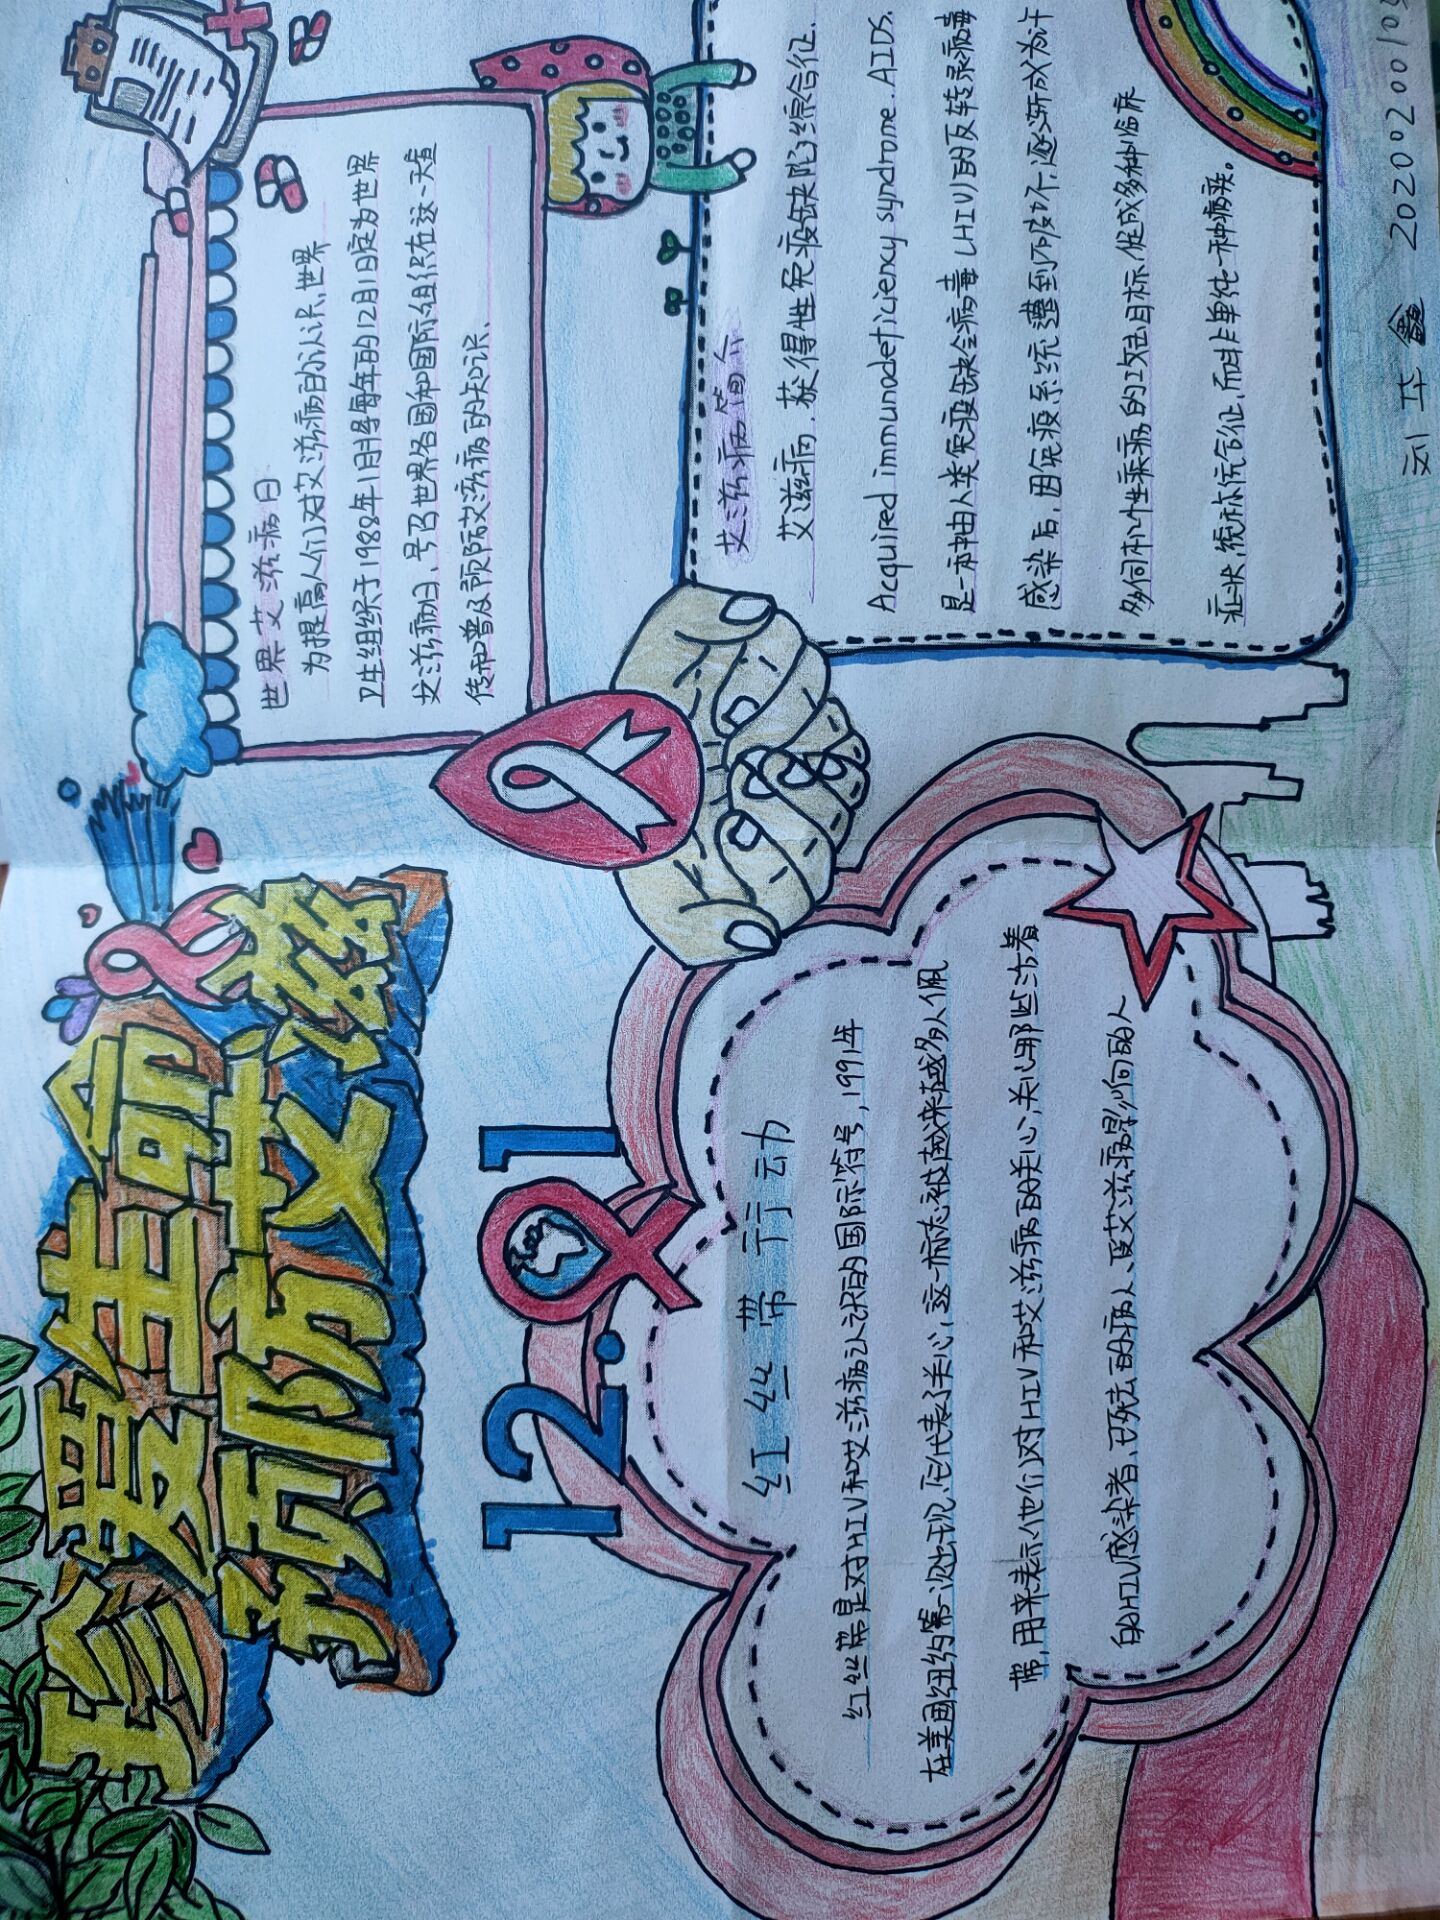 珍爱生命
预防艾滋
12.1
世界艾滋病日
为提高人们对艾滋病的认识,世界
卫生组织于1988年1月将每年的12月1日定为世界
艾滋病日、号召世界各国和国际组织在这一天宣
传和普及预防艾滋病的知识、
红丝带行动
红丝带是对HIV和艾滋病认识的国际符号,1991年
在美国纽约第一次出现,它代表了关心,这一标志被越来越多人佩
带,用来表示他们对HIV和艾滋病的关心,关心那些活着
的HIV感染者、已死去的病人、受艾滋病影响的人
艾滋病简介
艾滋病,获得性免疫缺陷综合征.
Acquired immunodeficiency syndrome.AIDS.
是一种由人类免疫缺陷病毒(HIV)的反转录病毒
感染后,因免疫系统遭到破坏,逐渐成为许
多伺机性疾病的攻击目标,促成多种临床
症状,统称综合征,而非单纯一种疾病。
刘华鑫 2020020010